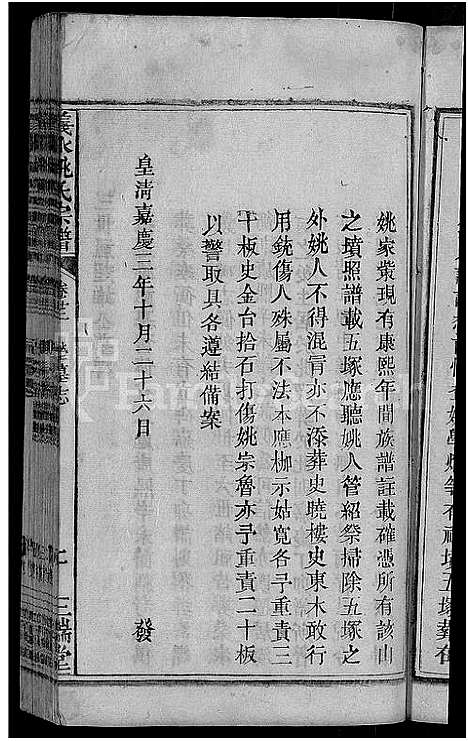 姚家紫現有康熙年間族譜註載確憑所有該山
之墳照譜載五塚應聽姚人管紹祭掃除五塚之
外姚人不得混冐亦不添葬史曉樓史東木敢行
用銃傷人殊屬不法本應枷示姑寬各予重責三
十板史金台拾石打傷姚宗魯亦予重責二十板
以警取具各遵結備案
皇清嘉慶三年十月二十六日 發
義水姚氏宗譜 墓志 三瑞堂